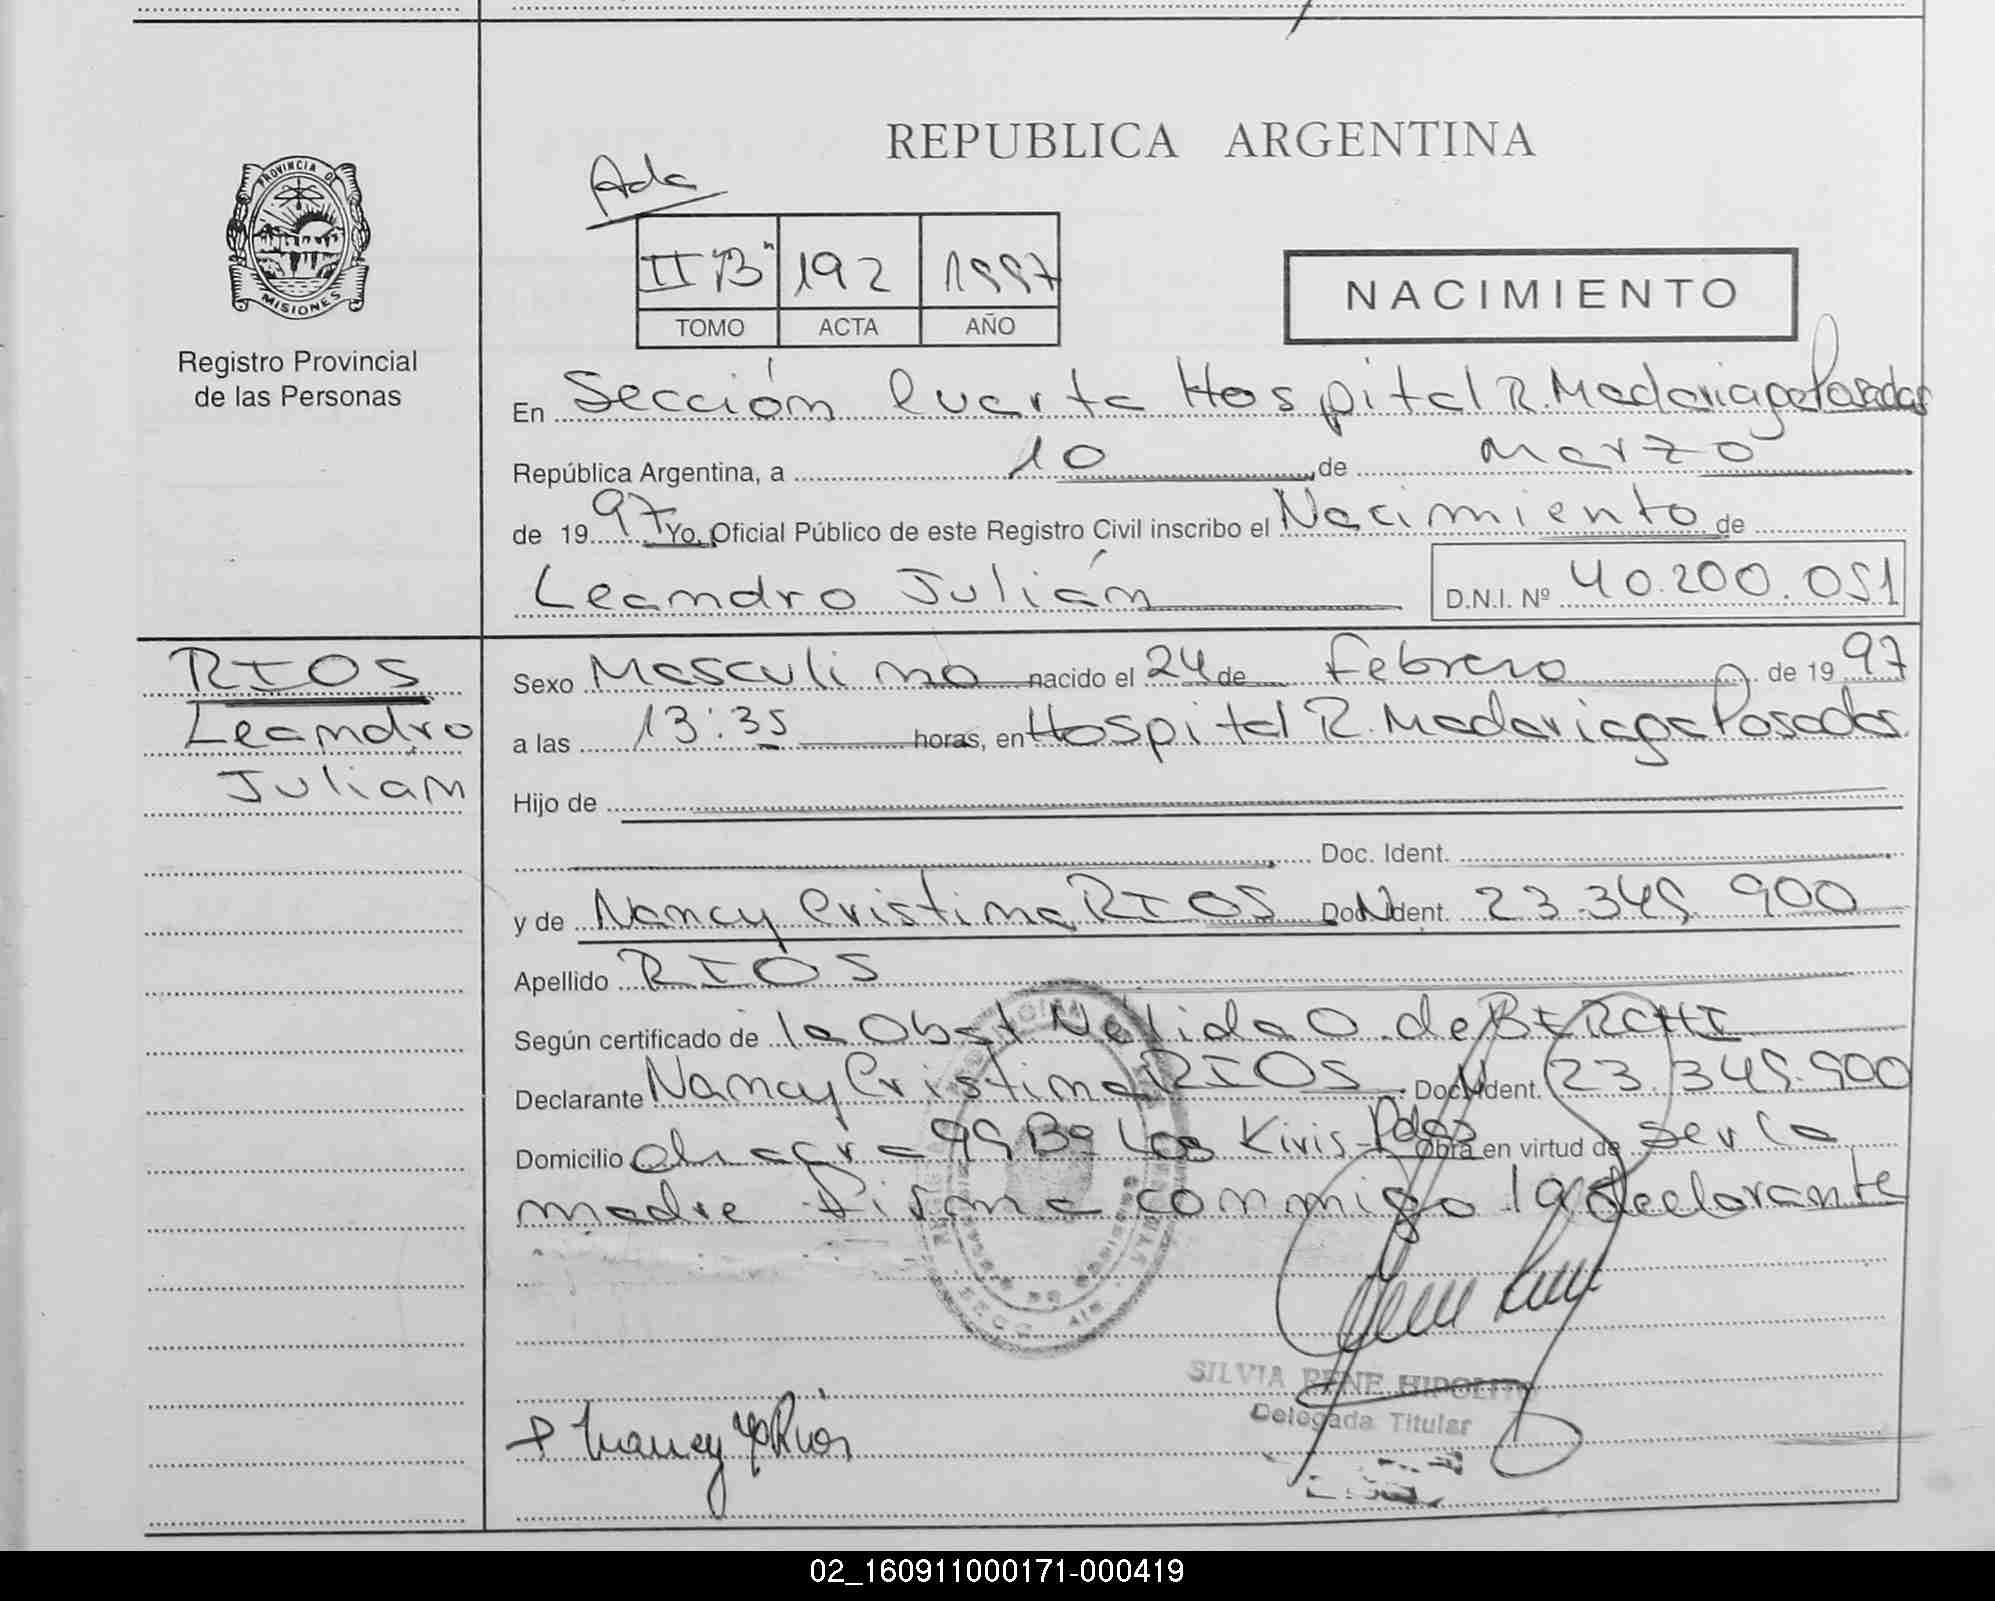 REPUBLICA ARGENTINA
PROVINCIA DE
MISIONES
Registro Provincial
de las Personas
Ada
II "B" 192 1997
TOMO ACTA AÑO
NACIMIENTO
En Sección Cuarta Hospital R. Madariaga Posadas
República Argentina, a 10 de Marzo
de 1997 Yo, Oficial Público de este Registro Civil inscribo el Nacimiento de
Leandro Julián D.N.I. Nº 40.200.051
RIOS
Leandro
Julian
Sexo Masculino nacido el 24 de Febrero de 1997
a las 13:35 horas, en Hospital R. Madariaga Posadas
Hijo de
Doc. Ident.
y de Nancy Cristina RIOS Doc. Ident. 23.349.900
Apellido RIOS
Según certificado de la Obst Nelida O. de BERCHI
Declarante Nancy Cristina RIOS Doc. Ident. 23.349.900
Domicilio chacra 99 Bº Los Kiris-Pdas Obra en virtud de ser la
madre firma conmigo la declarante
SILVIA RENE HIPOLITO
Delegada Titular
Nancy Rios
02_160911000171-000419